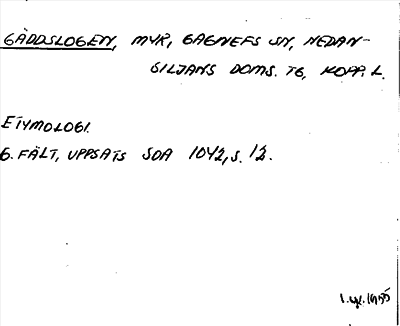 GÄDDSLOGEN, MYR, GAGNEFS SN, NEDAN-
SILJANS DOMS. TG, KOPP. L.
ETYMOLOGI.
G. FÄLT, UPPSATS SOA 1042, S. 12.